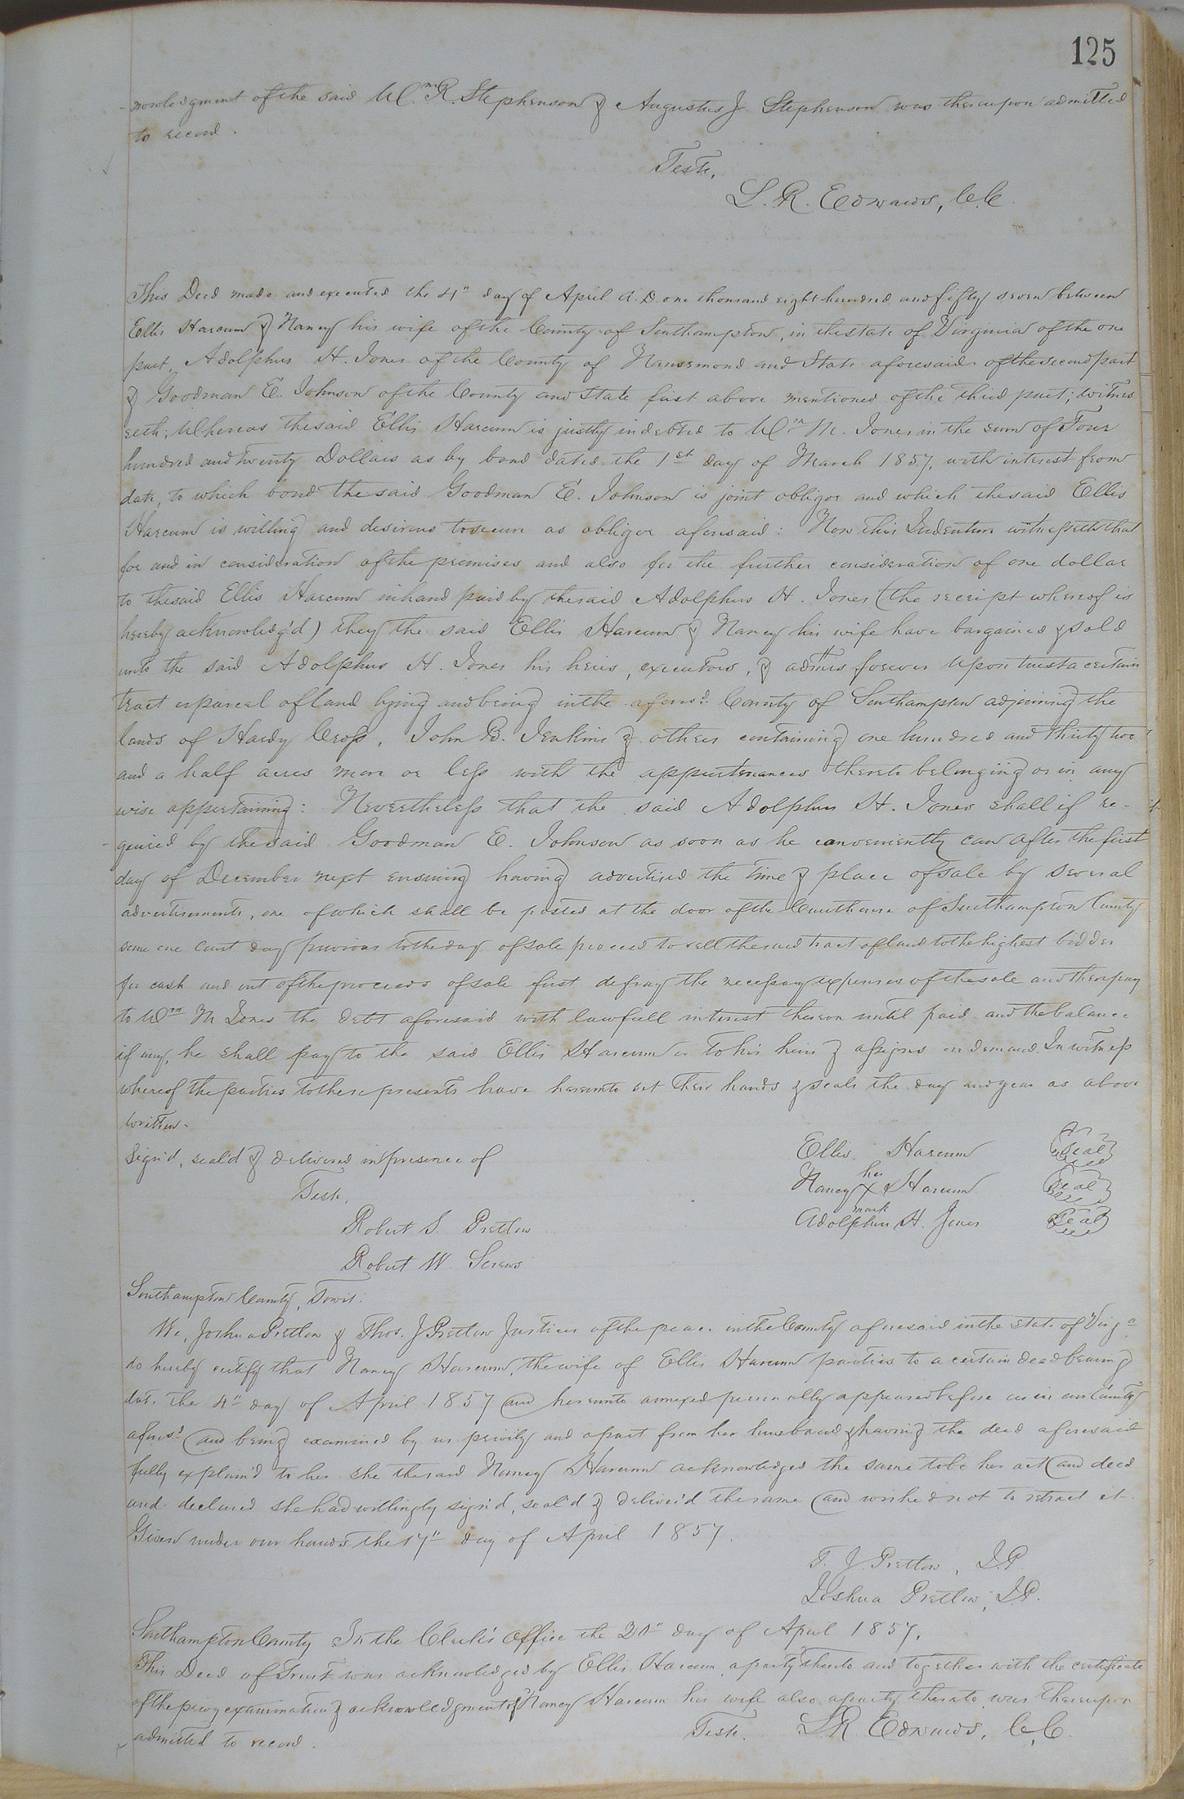 125
-nowledgment of the said Wm R. Stephenson & Augustus J. Stephenson was thereupon admitted
to record.
Teste,
L. R. Edwards, C.C.
This Deed made and executed the 4th day of April A.D one thousand eight hundred and fifty seven between
Ellis Harcum & Nancy his wife of the County of Southampton, in the state of Virginia of the one
part, Adolphus H. Jones of the County of Nansemond and State aforesaid of the second part
& Goodman E. Johnson of the County and State first above mentioned of the third part; witnes
seth; Whereas the said Ellis Harcum is justly indebted to Wm M. Jones in the sum of Four
hundred and twenty Dollars as by bond dated the 1st day of March 1857, with interest from
date, to which bond the said Goodman E. Johnson is joint obligor and which the said Ellis
Harcum is willing and desirous to secure as obligor aforesaid: Now this Indenture witnesseth that
for and in consideration of the premises and also for the further consideration of one dollar
to the said Ellis Harcum in hand paid by the said Adolphus H. Jones (the receipt whereof is
hereby acknowledg'd) they the said Ellis Harcum & Nancy his wife have bargained & sold
unto the said Adolphus H. Jones his heirs, executors, & admrs forever Upon trust a certain
tract or parcel of land lying and being in the aforesd. County of Southampton adjoining the
lands of Hardy Cross, John B. Jenkins & others containing one hundred and thirty two
and a half acres more or less with the appurtenances thereto belonging or in any
wise appertaining: Nevertheless that the said Adolphus H. Jones shall if re-
-quired by the said Goodman E. Johnson as soon as he conveniently can after the first
day of December next ensuing having advertised the time & place of sale by several
advertisements, one of which shall be posted at the door of the Courthouse of Southampton County
some one court day previous to the day of sale proceed to sell the said tract of land to the highest bidder
for cash and out of the proceeds of sale first defray the necessary expenses of the sale and then pay
to Wm M Jones the debt aforesaid with lawfull interest thereon until paid and the balance
if any, he shall pay to the said Ellis Harcum or to his heirs & assigns on demand. In witness
whereof the parties to these presents have hereunto set their hands & seals the day and year as above
written.
Sign'd, seal'd & delivered in presence of
Teste,
Robert S. Pretlow
Robert W. Screws
Ellis Harcum Seal
her
Nancy X Harcum Seal
mark
Adolphus H. Jones Seal
Southampton County, Towit:
We, Joshua Pretlow & Thos. J Pretlow Justices of the peace in the County aforesaid in the state of Virga
do hereby certify that Nancy Harcum, the wife of Ellis Harcum parties to a certain deed bearing
date the 4th day of April 1857 and hereunto annexed personally appeared before us in our County
aforesd and being examined by us privily and apart from her husband & having the deed aforesaid
fully explain'd to her she the said Nancy Harcum acknowledged the same to be her act and deed
and declared she had willingly sign'd, seal'd & deliver'd the same and wished not to retract it.
Given under our hands the 17th day of April 1857.
T. J. Pretlow, J.P
Joshua Pretlow, J.P.
Southampton County In the Clerk's Office the 20th day of April 1857.
This Deed of Trust was acknowledged by Ellis Harcum, a party thereto and together with the certificate
of the privy examination & acknowledgment of Nancy Harcum his wife also a party thereto was thereupon
admitted to record.
Teste. L R Edwards, C.C.